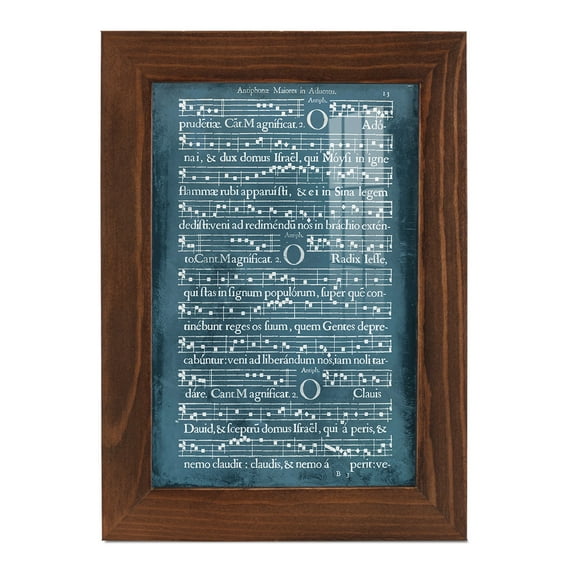 Antiphonæ Maiores in Aduentu. 13
Antiph.
prudẽtiæ. Cãt. Magnificat. 2. O Ado-
nai, & dux domus Iſraël, qui Moyſi in igne
flammæ rubi apparuiſti, & ei in Sina legem
dediſti: veni ad redimendũ nos in brachio extén-
Antiph.
to. Cant. Magnificat. 2. O Radix Ieſſe,
qui ſtas in ſignum populórum, ſuper què con-
tinébunt reges os ſuum, quem Gentes depre-
cabúntur: veni ad liberándum nos, iam noli tar-
Antiph.
dáre. Cant. Magnificat. 2. O Clauis
Dauid, & ſceptrũ domus Iſraël, qui á peris, &
nemo claudit: claudis, & nemo á perit: ve-
B 3